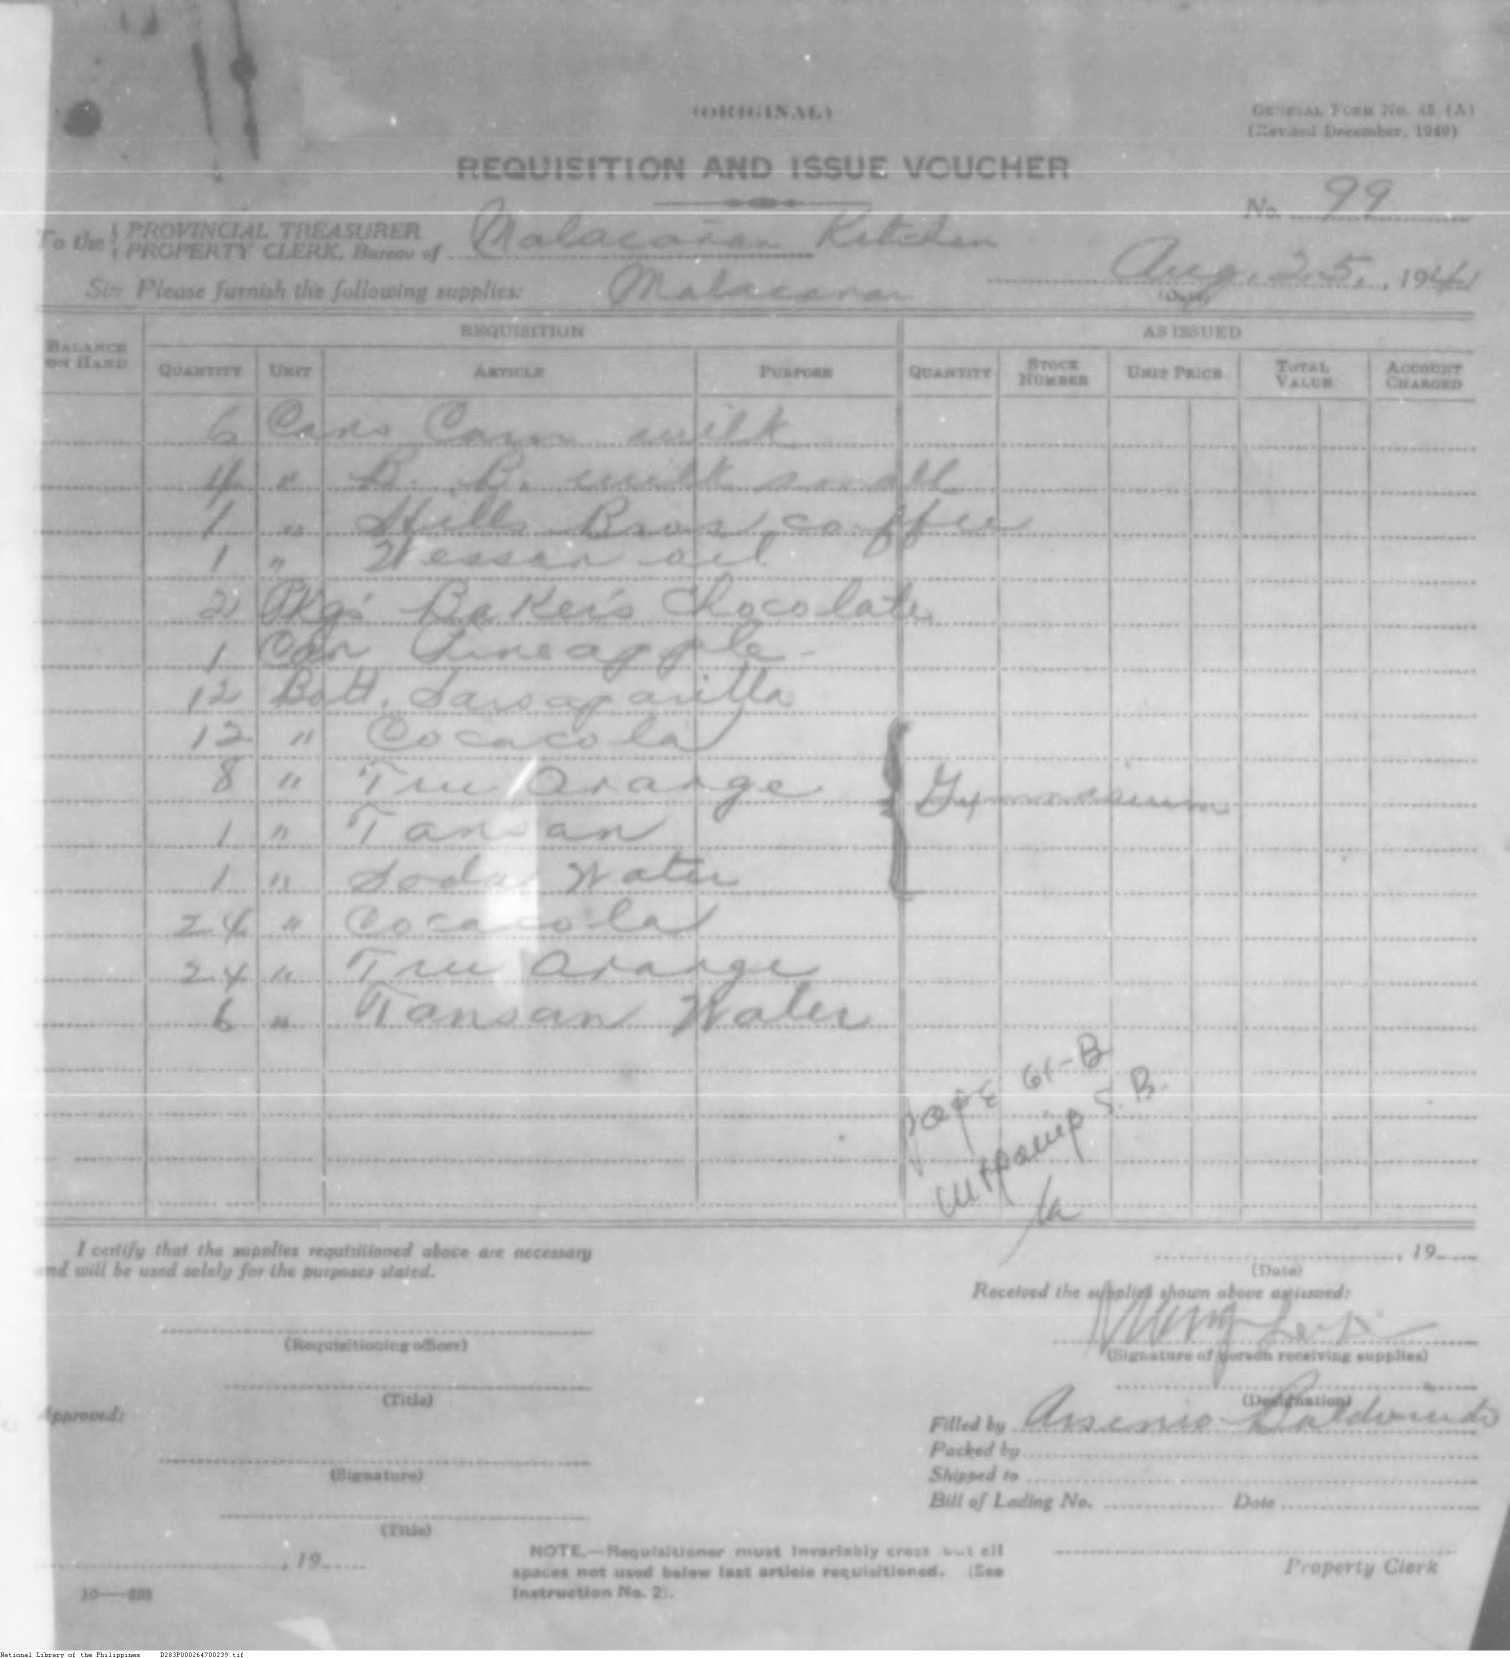 (ORIGINAL)
GENERAL FORM NO. 45 (A)
(Revised December, 1940)
REQUISITION AND ISSUE VOUCHER
No. 99
To the { PROVINCIAL TREASURER
PROPERTY CLERK, Bureau of Malacañan Kitchen
Aug. 25, 1941
(Date)
Sir: Please furnish the following supplies: Malacañan
BALANCE ON HAND
REQUISITION
AS ISSUED
QUANTITY UNIT ARTICLE PURPOSE QUANTITY STOCK NUMBER UNIT PRICE TOTAL VALUE ACCOUNT CHARGED
6 Cans Carn. milk
4 " B. B. milk small
1 " Hills Bros. coffee
1 " Wesson oil
2 Pkgs Baker's Chocolate
1 Can Pineapple
12 Bott. Sarsaparilla
12 " Cocacola
8 " Tru Orange
Gymnasium
1 " Tansan
1 " Soda Water
24 " Cocacola
24 " Tru Orange
6 " Tansan Water
page 61-B
S. B.
I certify that the supplies requisitioned above are necessary
and will be used solely for the purposes stated.
, 19
(Date)
Received the supplies shown above as issued:
(Requisitioning officer)
(Signature of person receiving supplies)
(Title)
(Designation)
Approved:
Filled by Arsenio Baldovindo
Packed by
(Signature)
Shipped to
Bill of Lading No. Date
(Title)
, 19
NOTE.—Requisitioner must invariably cross out all
spaces not used below last article requisitioned. (See
Instruction No. 2).
Property Clerk
National Library of the Philippines D283P000264700239.tif